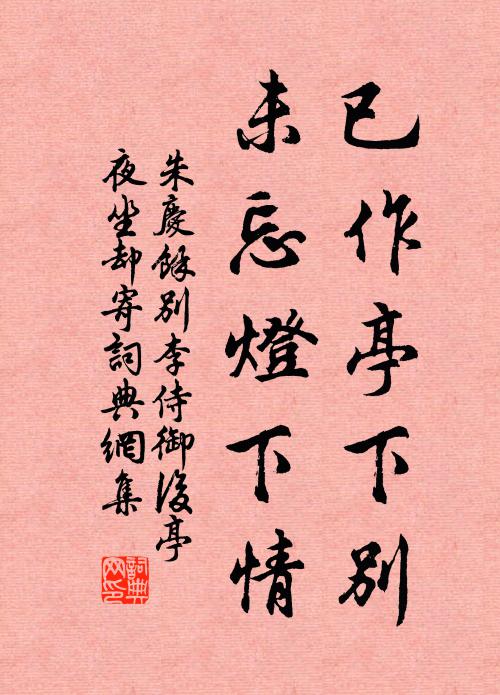 已作亭下別
未忘燈下情
朱慶餘別李侍御後亭
夜坐却寄詞典網集
詞典
網印